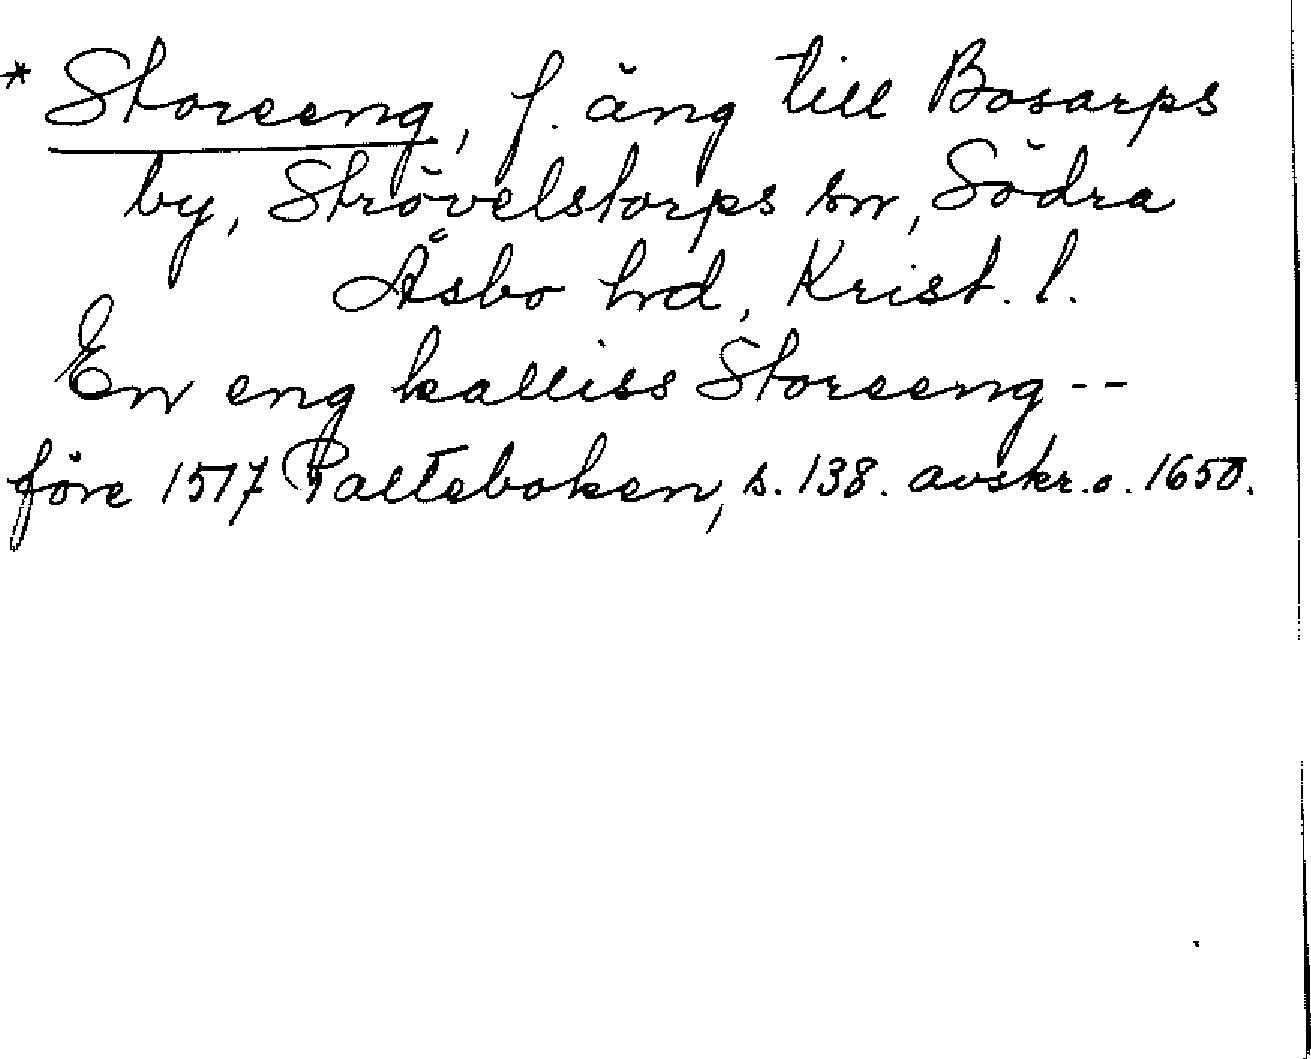 * Storeeng, f. äng till Bosarps
by, Strövelstorps sn, Södra
Åsbo hrd, Krist. l.
En eng kalliss Storeeng --
före 1517 Palteboken, s. 138. avskr. o. 1650.